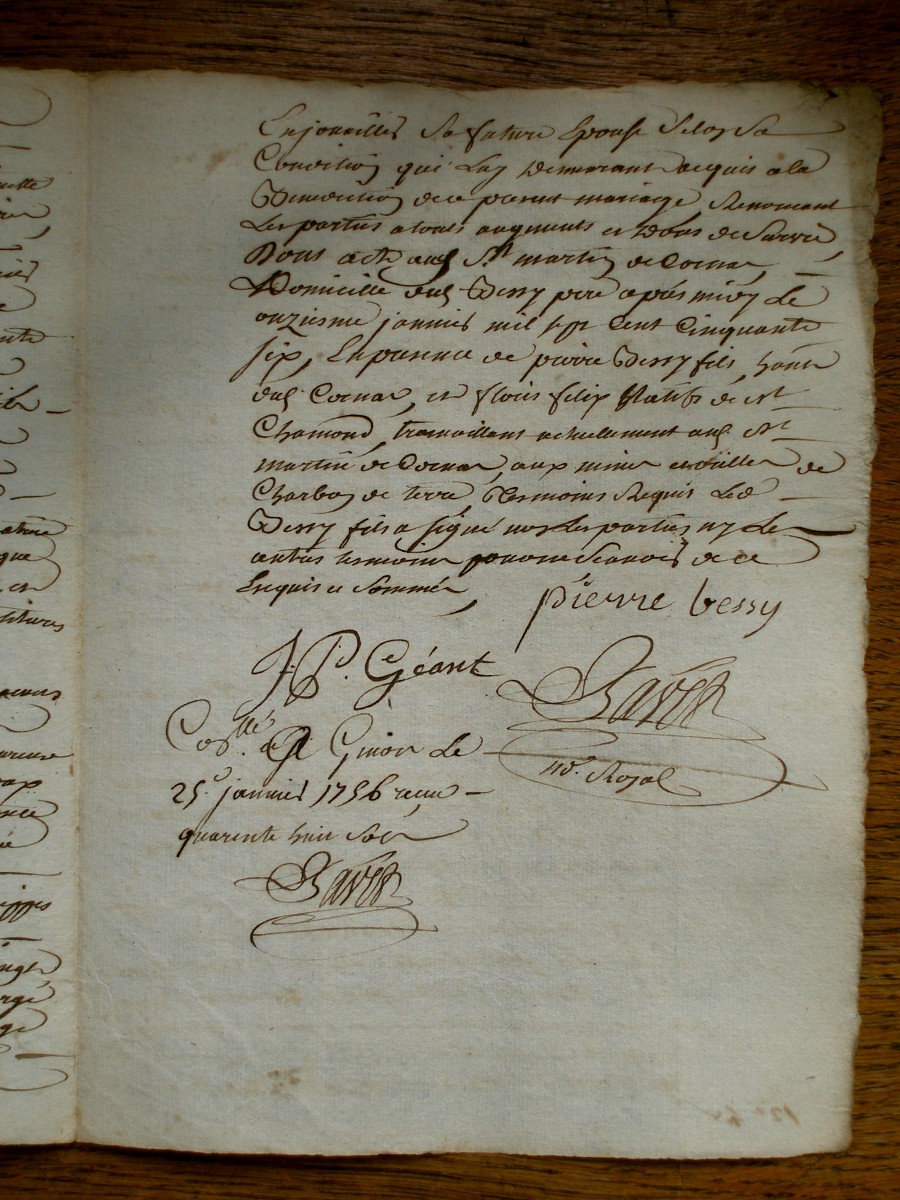 Enjoailler Sa future Epouse Selon Sa
Condition qui Luy demeurant acquis a la
Benediction de ce present mariage Renoncent
Les parties a tous augments et dons de Survie
Dont acte aud St martin de Cornas
Domicille dud Bessy pere apres midy Le
onziesme janvier mil sept cent Cinquante
six, En presence de pierre Bessy fils, habitt
dud Cornas, et floris felix Natifs de St
Chamond, travaillant actuellement aud St
martin de Cornas, aux mines de
Charbon de terre, Tesmoins Requis Led
Bessy fils a signé non Les parties ny Le
autres tesmoins pour ne Scavoir de ce
Enquis et Sommés,
pierre bessy
J. P. Géant
Not. Royal
Con.llé a Givors Le
25e janvier 1756 receu
quarente huit Sols